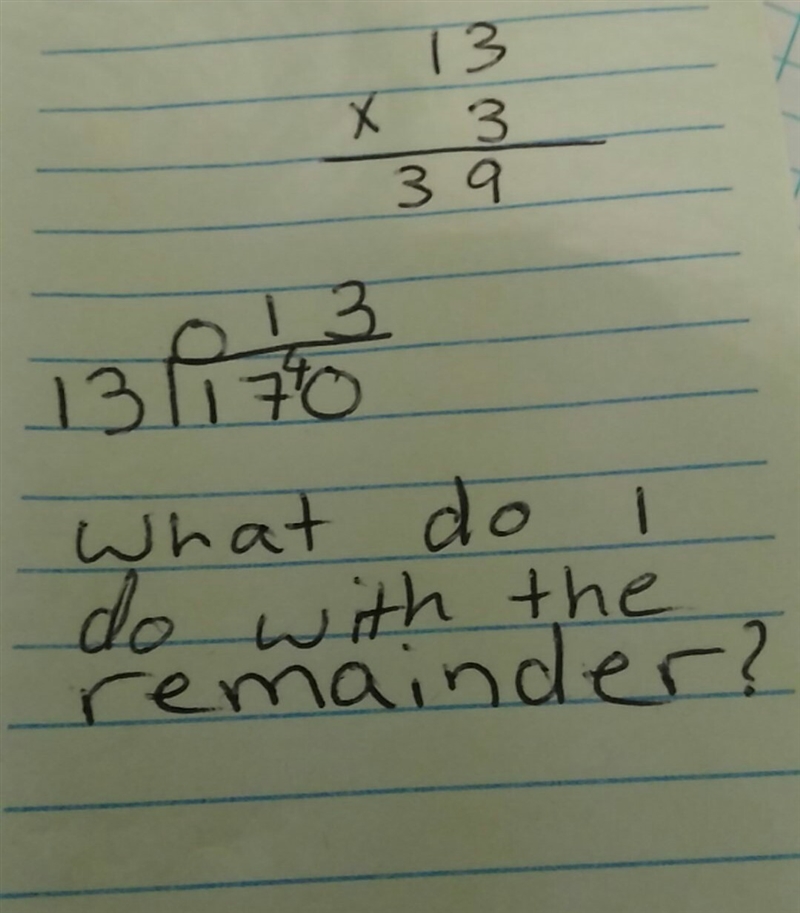 13
x 3
39
013
13 17⁴0
what do I
do with the
remainder?